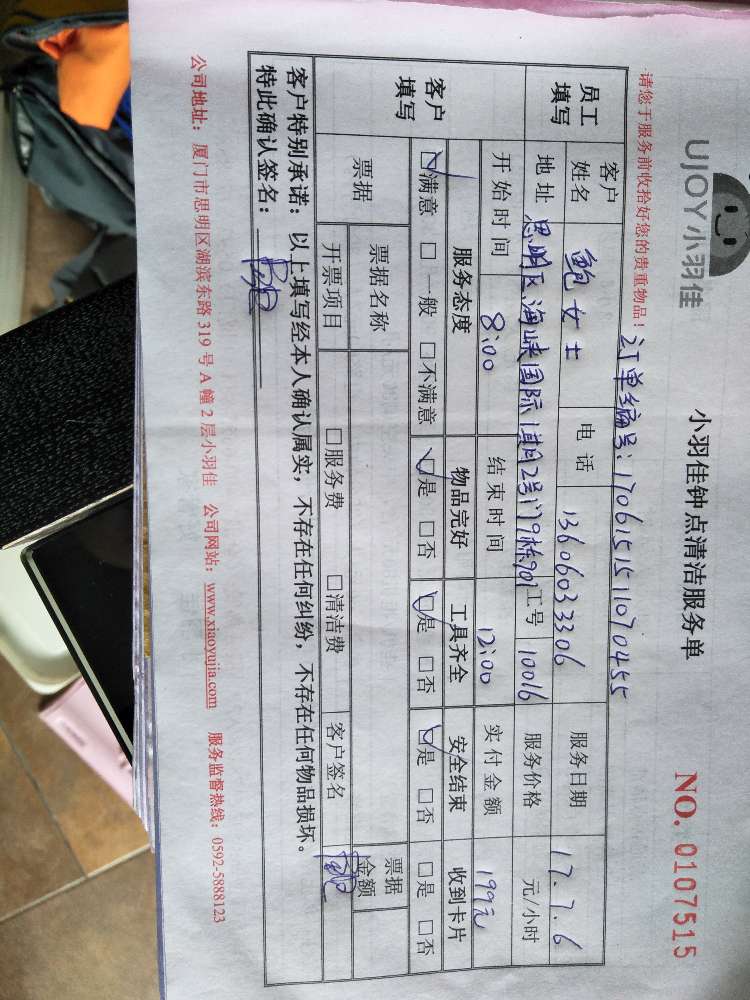 UJOY小羽佳
小羽佳钟点清洁服务单
NO. 0107515
·请您于服务前收拾好您的贵重物品！
订单编号：1706151511070455
员工填写
客户姓名 鲍女士 电话 13606033306 服务日期 17.7.6
地址 思明区海峡国际 2号门9栋901 工号 10016 服务价格 元/小时
开始时间 8:00 结束时间 12:00 实付金额 199元
客户填写
服务态度 物品完好 工具齐全 安全结束 收到卡片
☑满意 □一般 □不满意 ☑是 □否 ☑是 □否 ☑是 □否 □是 □否
票据 票据名称 票据金额
开票项目 □服务费 □清洁费 客户签名
客户特别承诺：以上填写经本人确认属实，不存在任何纠纷，不存在任何物品损坏。
特此确认签名：
公司地址：厦门市思明区湖滨东路 319 号 A 幢 2 层小羽佳 公司网站：www.xiaoyujia.com 服务监督热线：0592-5888123